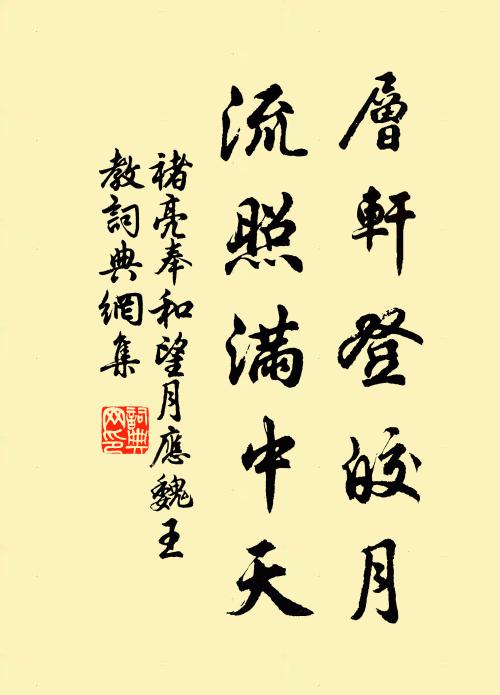 層軒登皎月
流照滿中天
褚亮奉和望月應魏王
教詞典網集
詞典
网印